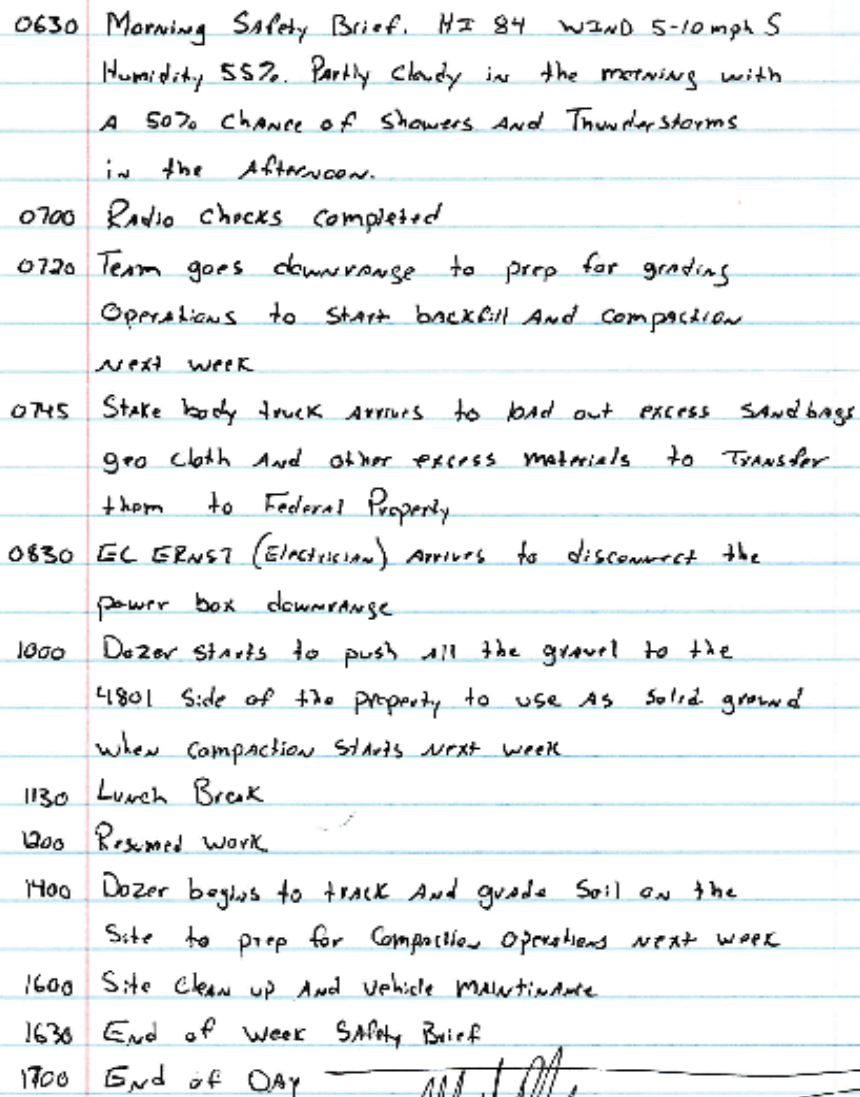 0630 Morning Safety Brief. HI 84 WIND 5-10 mph S
Humidity 55%. Partly Cloudy in the morning with
A 50% Chance of Showers And Thunderstorms
in the Afternoon.
0700 Radio Checks Completed
0720 Team goes downrange to prep for grading
Operations to Start backfill And Compaction
Next week
0745 Stake body truck Arrives to load out excess Sandbags
geo cloth And other excess materials to Transfer
them to Federal Property
0830 EC ERNST (Electrician) Arrives to disconnect the
power box downrange
1000 Dozer Starts to push All the gravel to the
4801 Side of the property to use As Solid ground
when Compaction Starts Next week
1130 Lunch Break
1200 Resumed Work
1400 Dozer begins to track And grade Soil on the
Site to prep for Compaction Operations Next week
1600 Site Clean up And Vehicle Maintinance
1630 End of Week Safety Brief
1700 End of Day